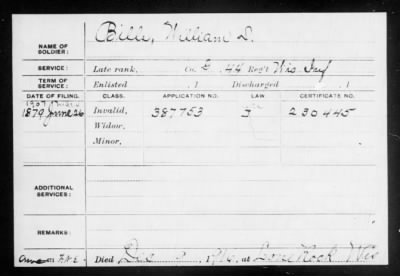 Bills, William D.
NAME OF SOLDIER:
SERVICE: Late rank, Co. G, 44 Reg't Wis Inf
TERM OF SERVICE: Enlisted , 1 Discharged , 1
DATE OF FILING. CLASS. APPLICATION NO. LAW CERTIFICATE NO.
1879 June 26 Invalid, 387753 230445
Widow,
Minor,
ADDITIONAL SERVICES:
REMARKS:
Died Dec , 19 , at Lone Rock, Wis